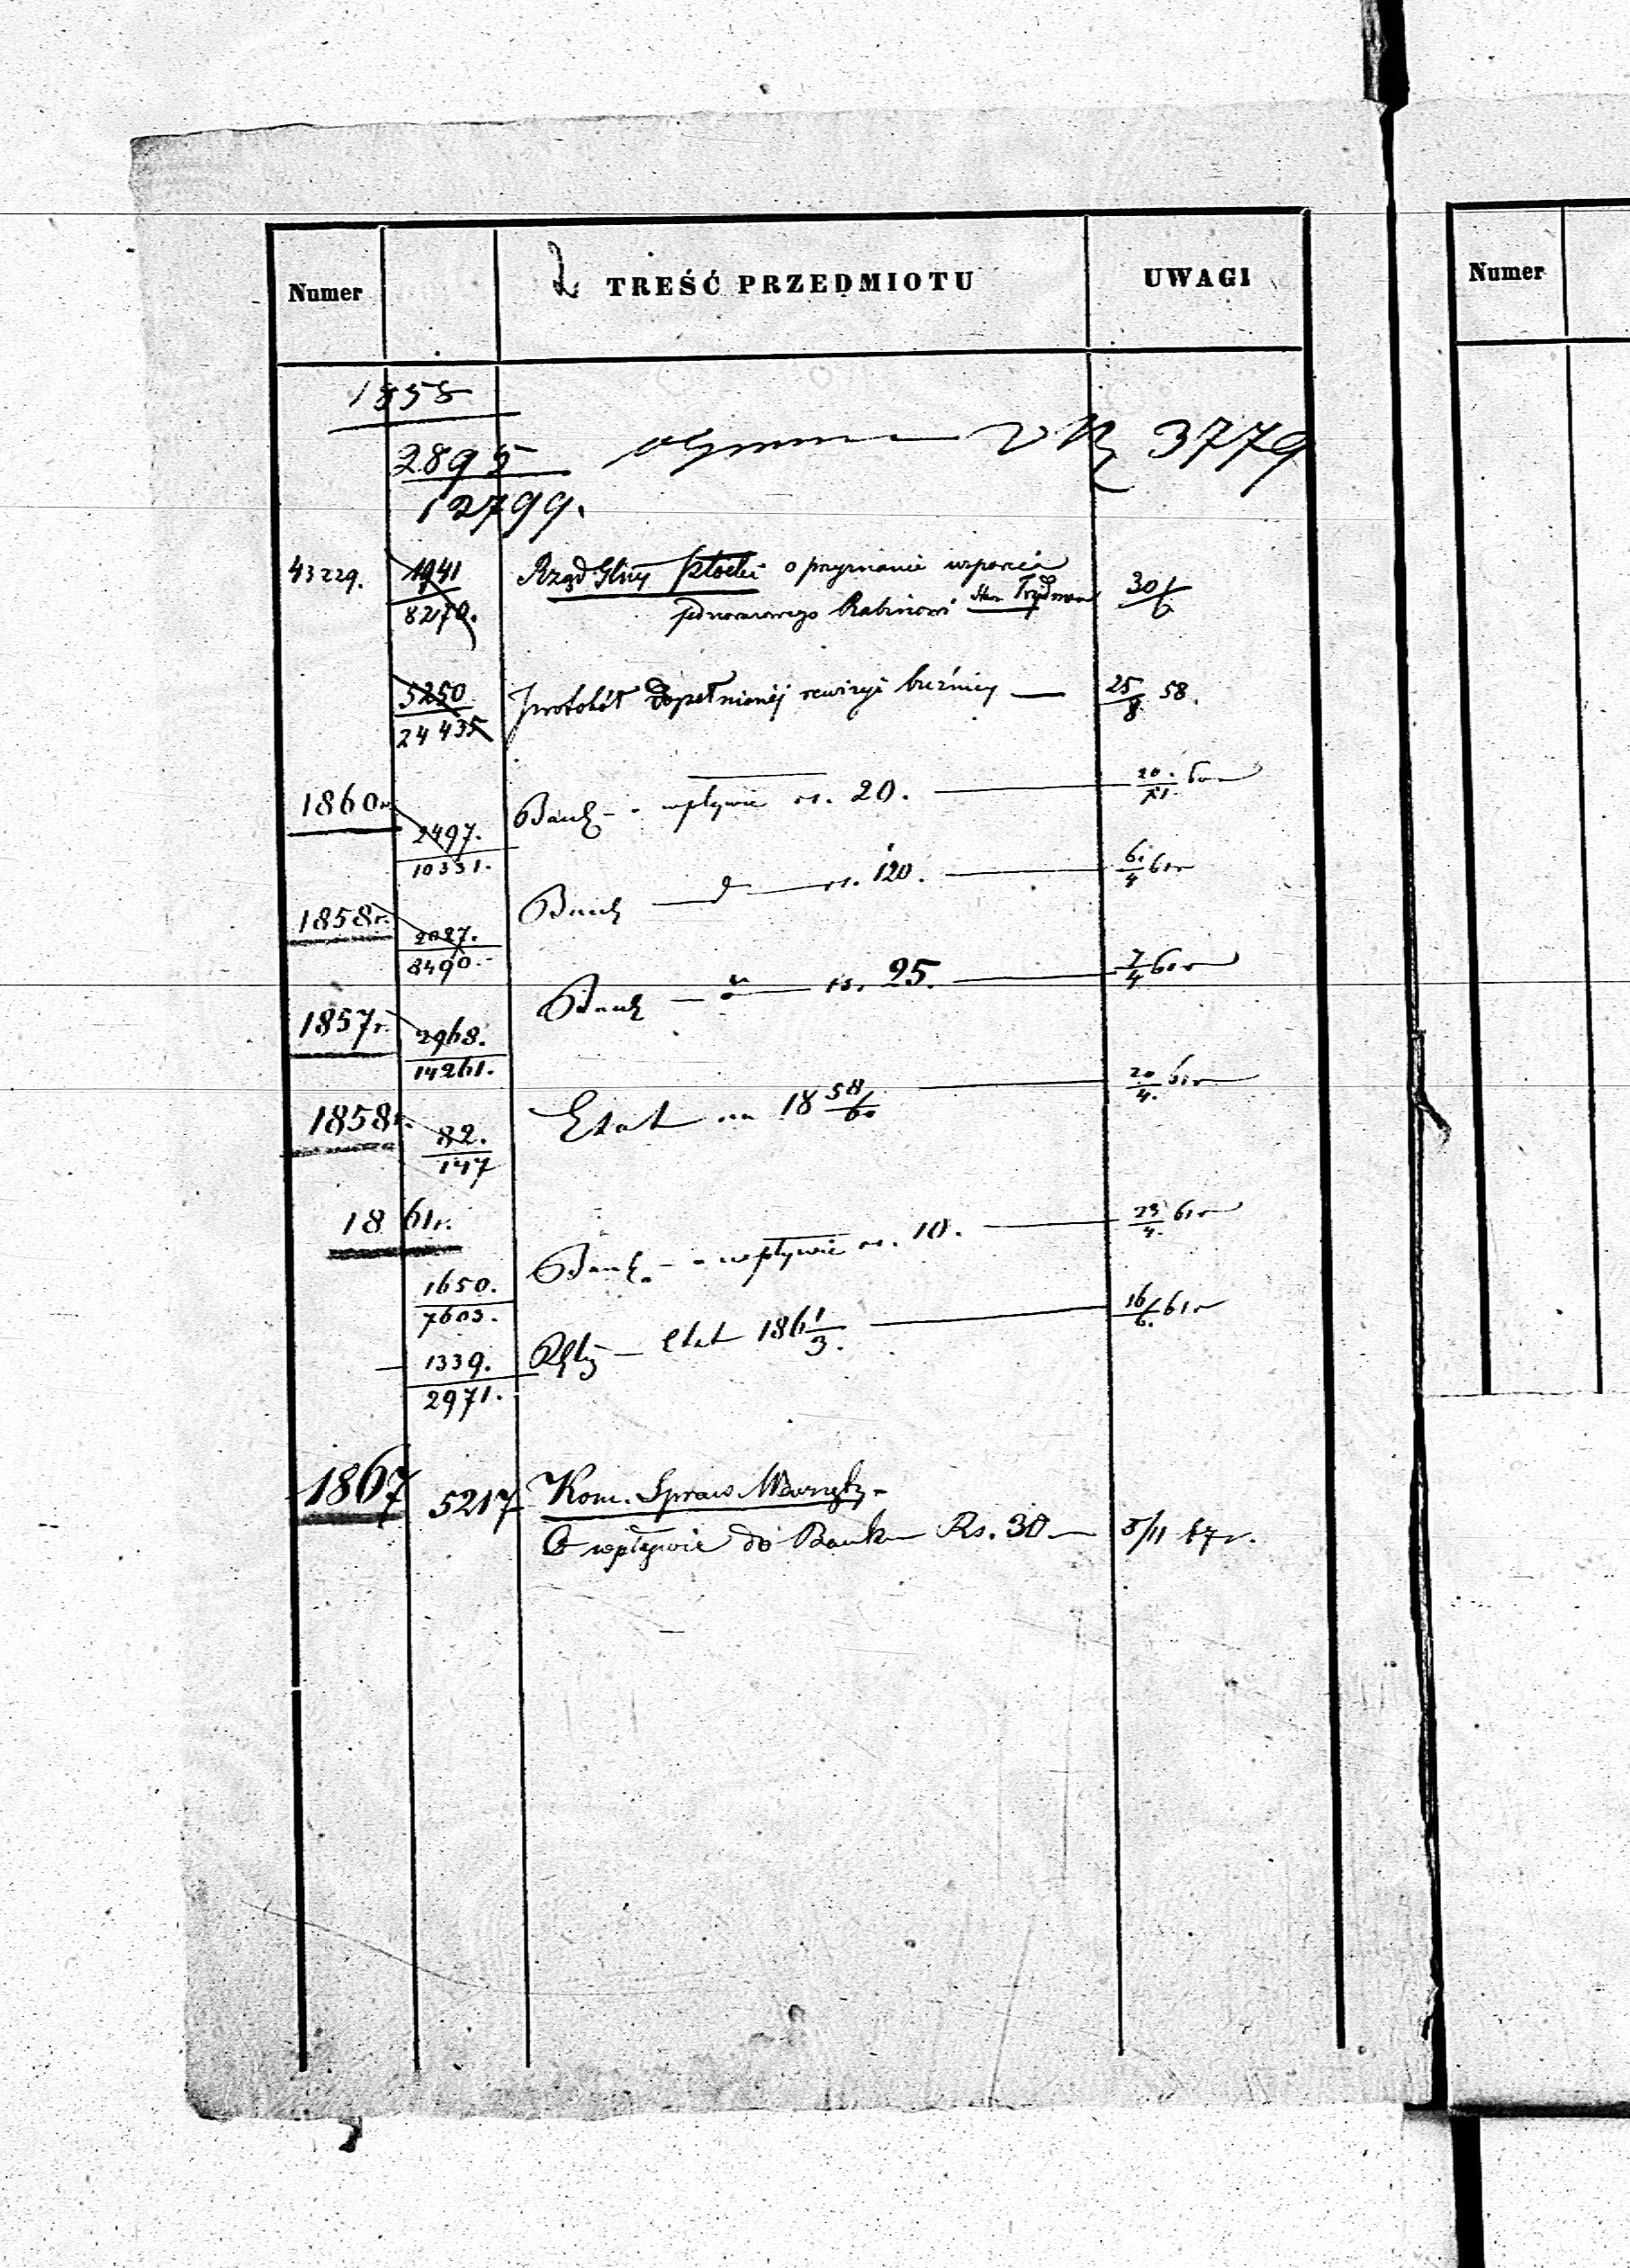 Numer 2 TREŚĆ PRZEDMIOTU UWAGI Numer
1858
2895 3779
12799.
43229. 1941 Rząd Gbny Płocki o przyznanie wsparcia 30/6
8270. jednorazowego Rabinowi
5250 Protokół dopełnionéj rewizyi bużnicy — 25/8 58.
24435
1860r.
2497. Bank - o wpływie rs. 20. — 20/XI. 60r
10331.
1858r.
2027. Bank — d — rs. 120. — 6/4 61r
8490.-
1857r.
2968. Bank — " — rs. 25. — 7/4 61r
14261.
1858r.
82. Etat na 18 58/60 — 20/4. 61r
147
1861r.
1650. Bank. - o wpływie rs. 10. — 23/4. 61r
7603.
1339. — Etat 186 1/3. — 16/6. 61r
2971.
1867 5217 Kom. Spraw Wewnętz.
O wpływie do Banku Rs. 30 — 5/11 67r.